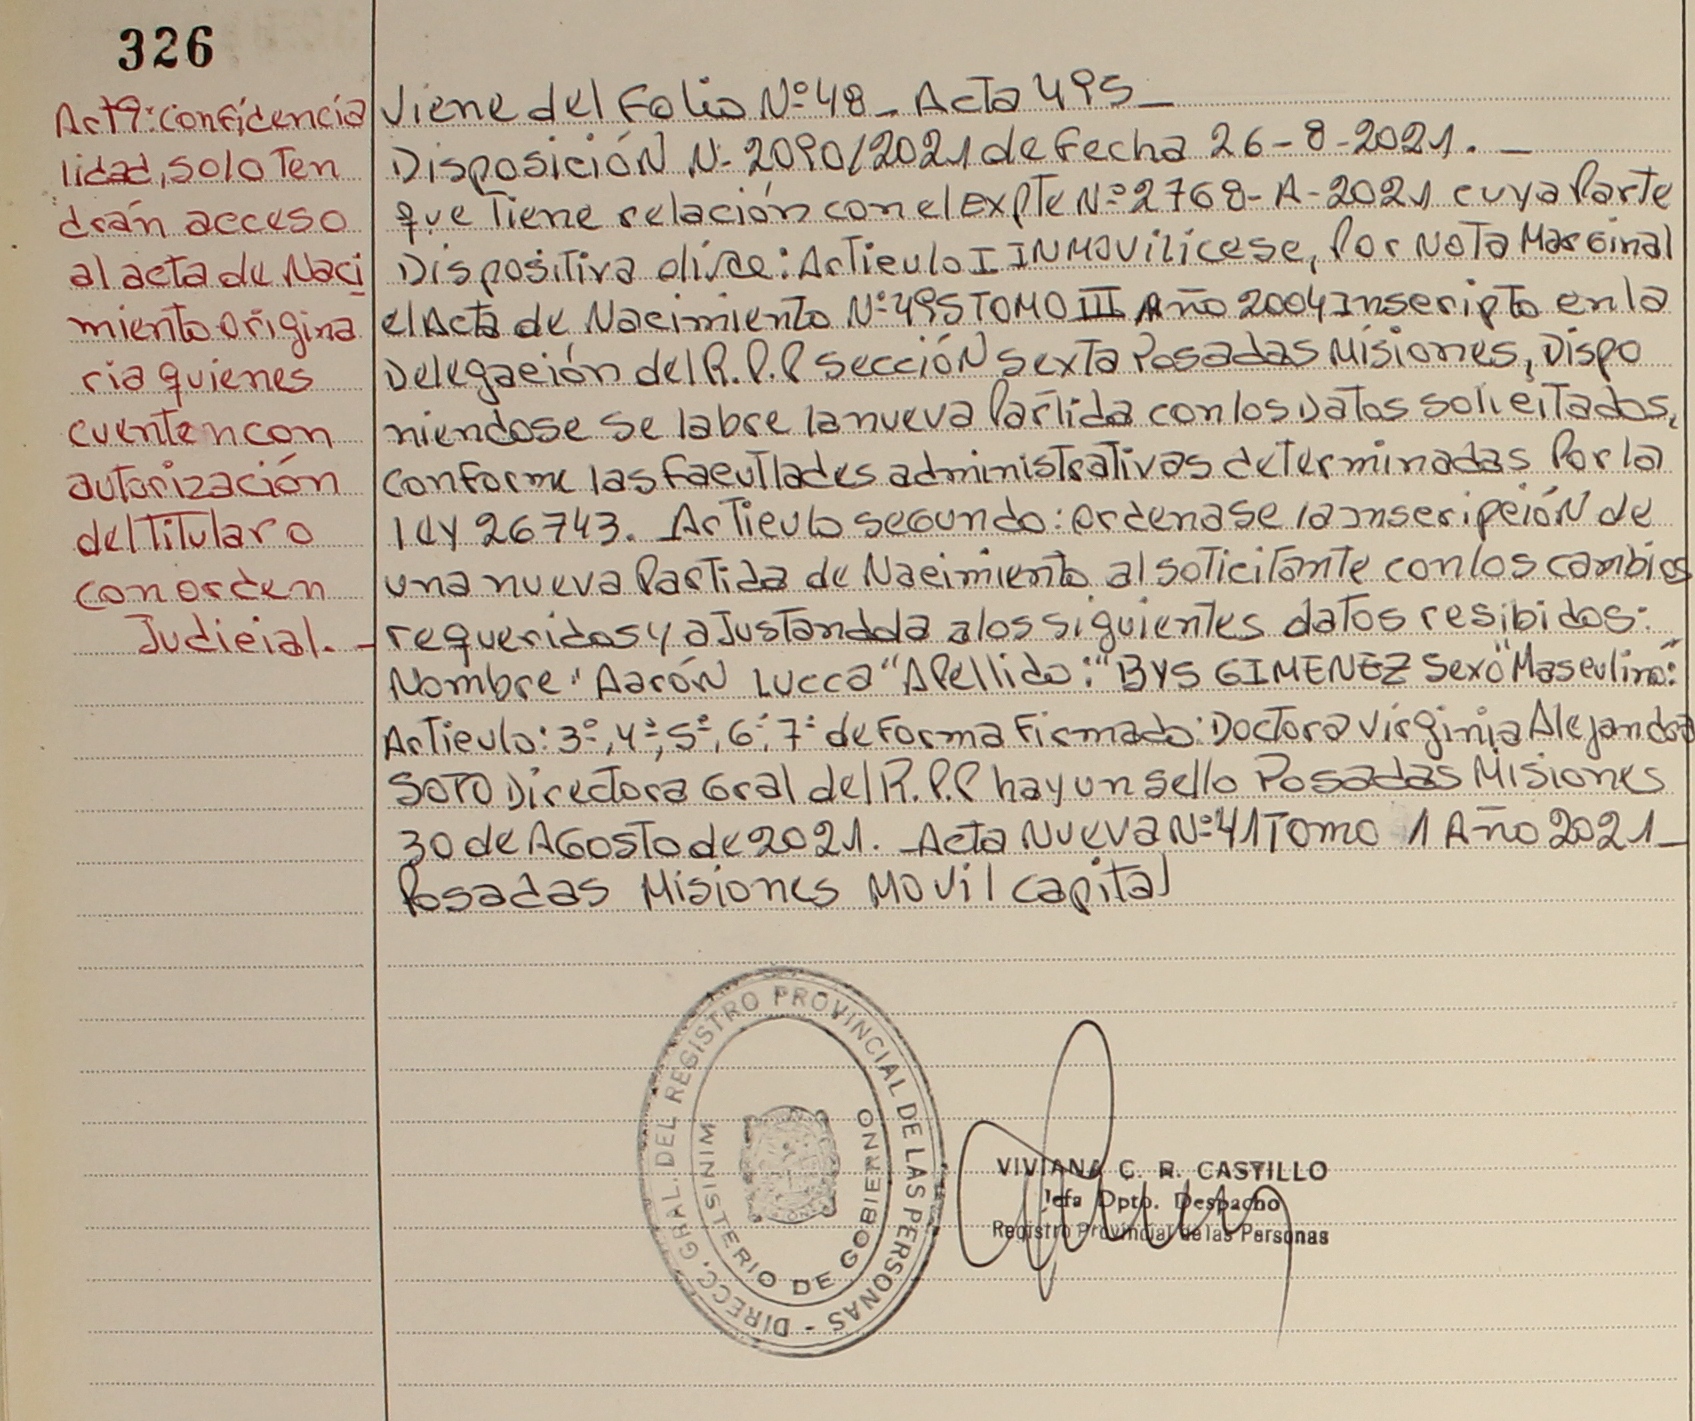 326
Art 9: Confidencia
lidad, solo Ten
drán acceso
al acta de Naci
miento origina
ria quienes
cuenten con
autorización
del Titular o
con orden
Judicial. -
Viene del Folio Nº 48 - Acta 495 -
Disposición N- 2090/2021 de Fecha 26-8-2021. -
que Tiene relación con el Expte Nº 2768-A-2021 cuya Parte
Dispositiva dice: Articulo I INMOVILÍCESE, Por Nota Marginal
el Acta de Nacimiento Nº 495 TOMO III Año 2004 Inscripto en la
Delegación del R.P.P sección sexta Posadas Misiones, Dispo
niendose se labre la nueva Partida con los Datos solicitados,
conforme las facultades administrativas determinadas Por la
ley 26743. Articulo segundo: ordenase la inscripción de
una nueva Partida de Nacimiento al solicitante con los cambios
requeridos y aJustandola a los siguientes datos resibidos:
Nombre "Aarón Lucca" Apellido: "BYS GIMENEZ Sexo "Masculino":
Articulo: 3º, 4º, 5º, 6º, 7º de Forma Firmado: Doctora Virginia Alejandra
SOTO Directora Gral del R.P.P hay un sello Posadas Misiones
30 de AGosto de 2021. - Acta Nueva Nº 41 Tomo 1 Año 2021 -
Posadas Misiones Movil capital
DIRECC. GRAL. DEL REGISTRO PROVINCIAL DE LAS PERSONAS -
MINISTERIO DE GOBIERNO
VIVIANA C. R. CASTILLO
Jefa Dpto. Despacho
Registro Provincial de las Personas